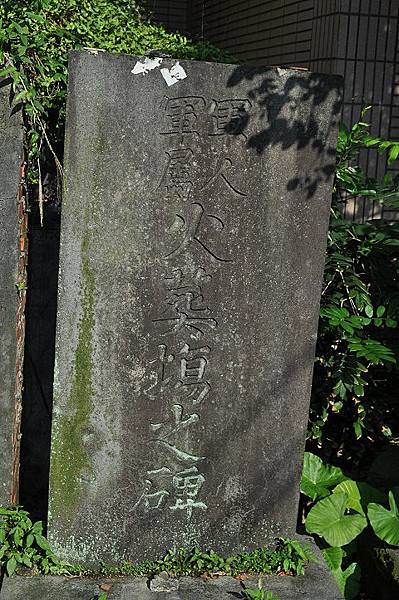 軍人
軍属
火葬塲之碑